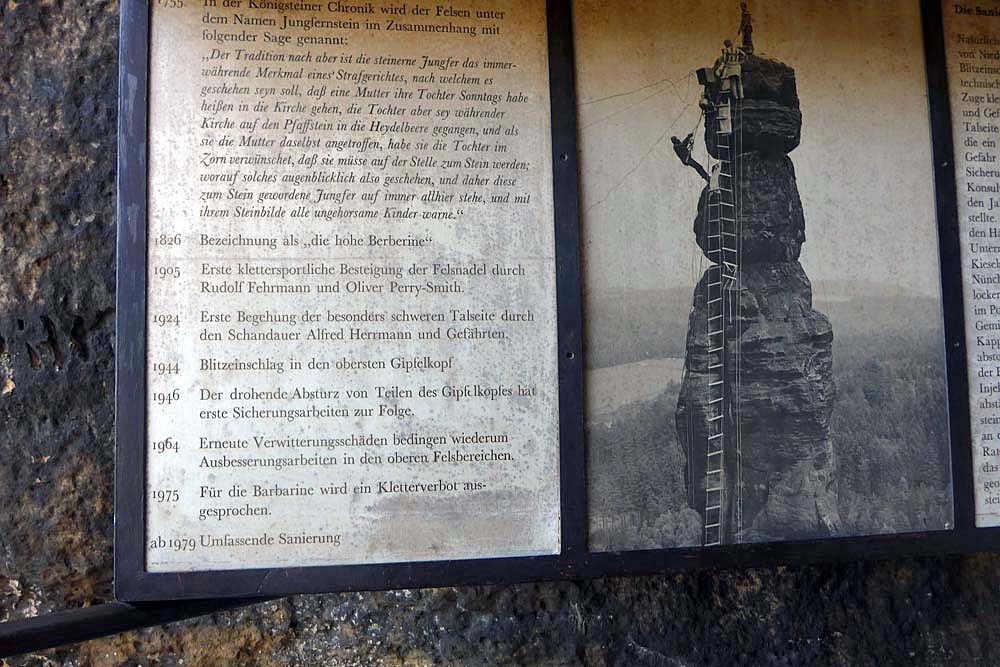 1755. In der Königsteiner Chronik wird der Felsen unter
dem Namen Jungfernstein im Zusammenhang mit
folgender Sage genannt:
„Der Tradition nach aber ist die steinerne Jungfer das immer-
währende Merkmal eines Strafgerichtes, nach welchem es
geschehen seyn soll, daß eine Mutter ihre Tochter Sonntags habe
heißen in die Kirche gehen, die Tochter aber sey währender
Kirche auf den Pfaffstein in die Heydelbeere gegangen, und als
sie die Mutter daselbst angetroffen, habe sie die Tochter im
Zorn verwünschet, daß sie müsse auf der Stelle zum Stein werden;
worauf solches augenblicklich also geschehen, und daher diese
zum Stein gewordene Jungfer auf immer allhier stehe, und mit
ihrem Steinbilde alle ungehorsame Kinder warne.“
1826 Bezeichnung als „die hohe Berberine“
1905 Erste klettersportliche Besteigung der Felsnadel durch
Rudolf Fehrmann und Oliver Perry-Smith.
1924 Erste Begehung der besonders schweren Talseite durch
den Schandauer Alfred Herrmann und Gefährten.
1944 Blitzeinschlag in den obersten Gipfelkopf
1946 Der drohende Absturz von Teilen des Gipfelkopfes hat
erste Sicherungsarbeiten zur Folge.
1964 Erneute Verwitterungsschäden bedingen wiederum
Ausbesserungsarbeiten in den oberen Felsbereichen.
1975 Für die Barbarine wird ein Kletterverbot aus-
gesprochen.
ab 1979 Umfassende Sanierung
Die Sani
Natürlich
von Nie
Blitzein
technisch
Zuge k
und Gef
Talseite
die ein
Gefahr
Sicheru
Konsul
den Ja
stellte.
den Hä
Untern
Kiesel
Nünch
locker
im Po
Gemi
Kapp
absto
der B
Injel
abst
stein
an
Rat
das
geo
stei